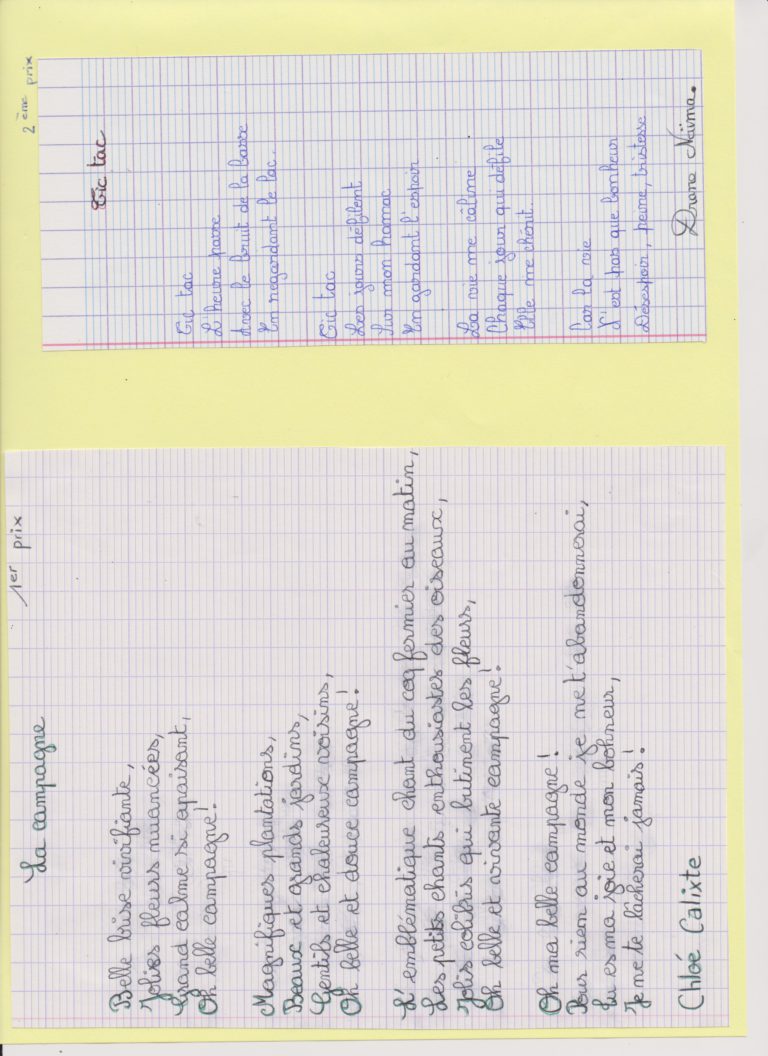 1er prix
La campagne
Belle brise vivifiante,
Jolies fleurs nuancées,
Grand calme si apaisant,
Oh belle campagne!
Magnifiques plantations,
Beaux et grands jardins,
Gentils et chaleureux voisins,
Oh belle et douce campagne!
L'emblématique chant du coq fermier au matin,
Les petits chants enthousiastes des oiseaux,
Jolis colibris qui butinent les fleurs,
Oh belle et vivante campagne!
Oh ma belle campagne!
Pour rien au monde je ne t'abandonnerai,
Tu es ma joie et mon bohneur,
Je ne te lâcherai jamais!
Chloé Calixte
2ème prix
Tic tac
Tic tac
L'heure passe
Avec le bruit de la basse
En regardant le lac.
Tic tac
Les jours défilent
Sur mon hamac
En gardant l'espoir
La vie me câline
Chaque jour qui défile
Elle me chérit...
Car la vie
N'est pas que bonheur
Désespoir, peine, tristesse
Drane Naïma.